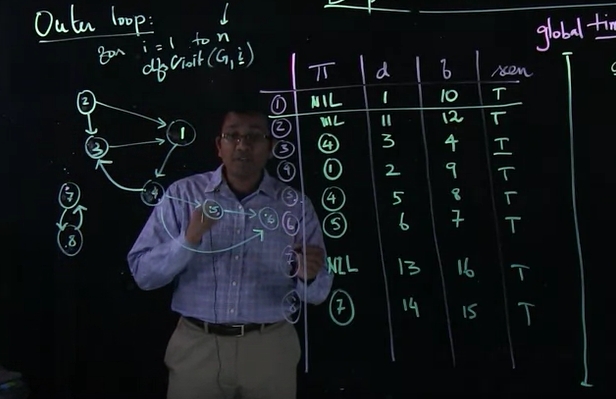 Outer loop:
for i = 1 to n
dfsVisit(G, i)
global tim
π d f seen
1 NIL 1 10 T
2 NIL 11 12 T
3 4 3 4 T
4 1 2 9 T
5 4 5 8 T
6 5 6 7 T
7 NIL 13 16 T
8 7 14 15 T
2
1
3
4
5
6
7
8